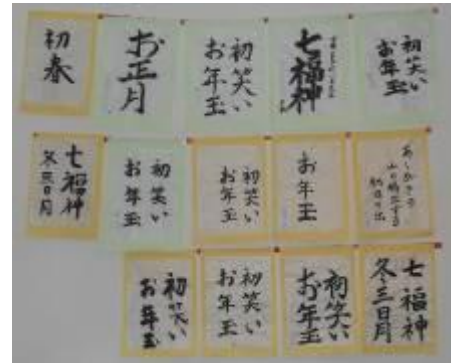 初春
お正月
初笑い
お年玉
七福神
初笑い
お年玉
七福神
冬三日月
初笑い
お年玉
初笑い
お年玉
お年玉
初日の出
初笑い
お年玉
初笑い
お年玉
初笑い
お年玉
七福神
冬三日月